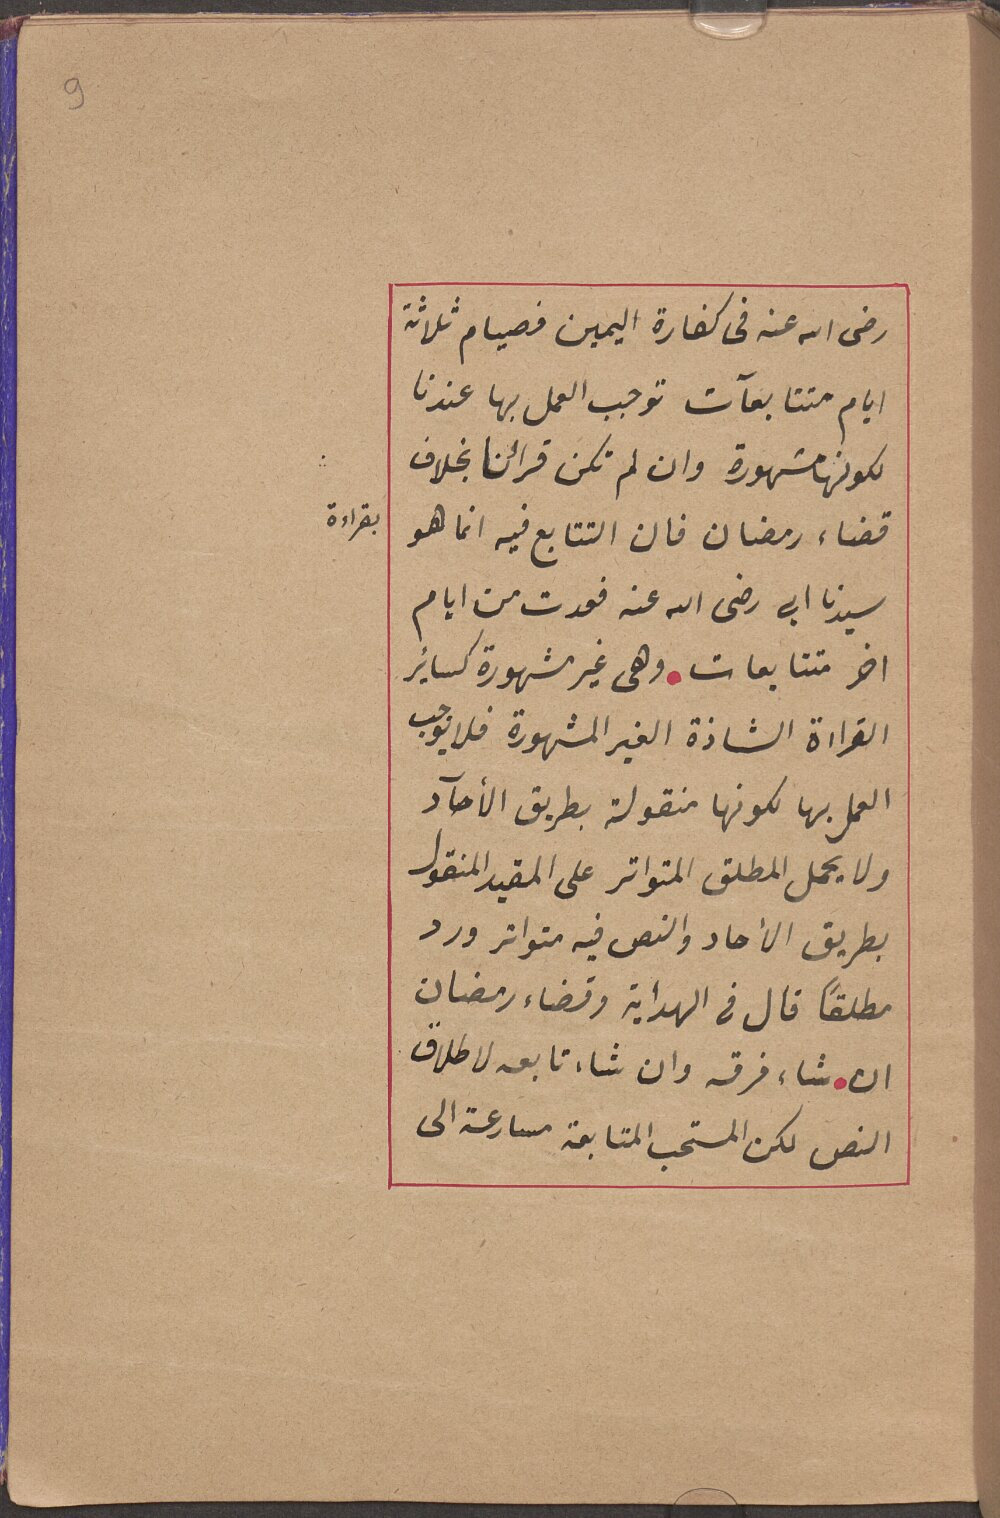 9
رضى الله عنه فى كفارة اليمين فصيام ثلاثة
ايام متتابعآت توجب العمل بها عندنا
لكونها مشهورة وان لم تكن قرائنا بخلاف
قضاء رمضان فان التتابع فيه انما هو
بقراءة
سيدنا ابى رضى الله عنه فعدت من ايام
اخر متتابعات . وهى غير مشهورة كسائر
القراءة الشاذة الغير المشهورة فلا يوجب
العمل بها لكونها منقولة بطريق الأحآد
ولا يحمل المطلق المتواتر على المقيد المنقول
بطريق الأحاد والنص فيه متواتر ورد
مطلقًا قال فى الهداية وقضاء رمضان
ان . شاء فرقه وان شاء تابعه لاطلاق
النص لكن المستحب المتابعة مسارعة الى